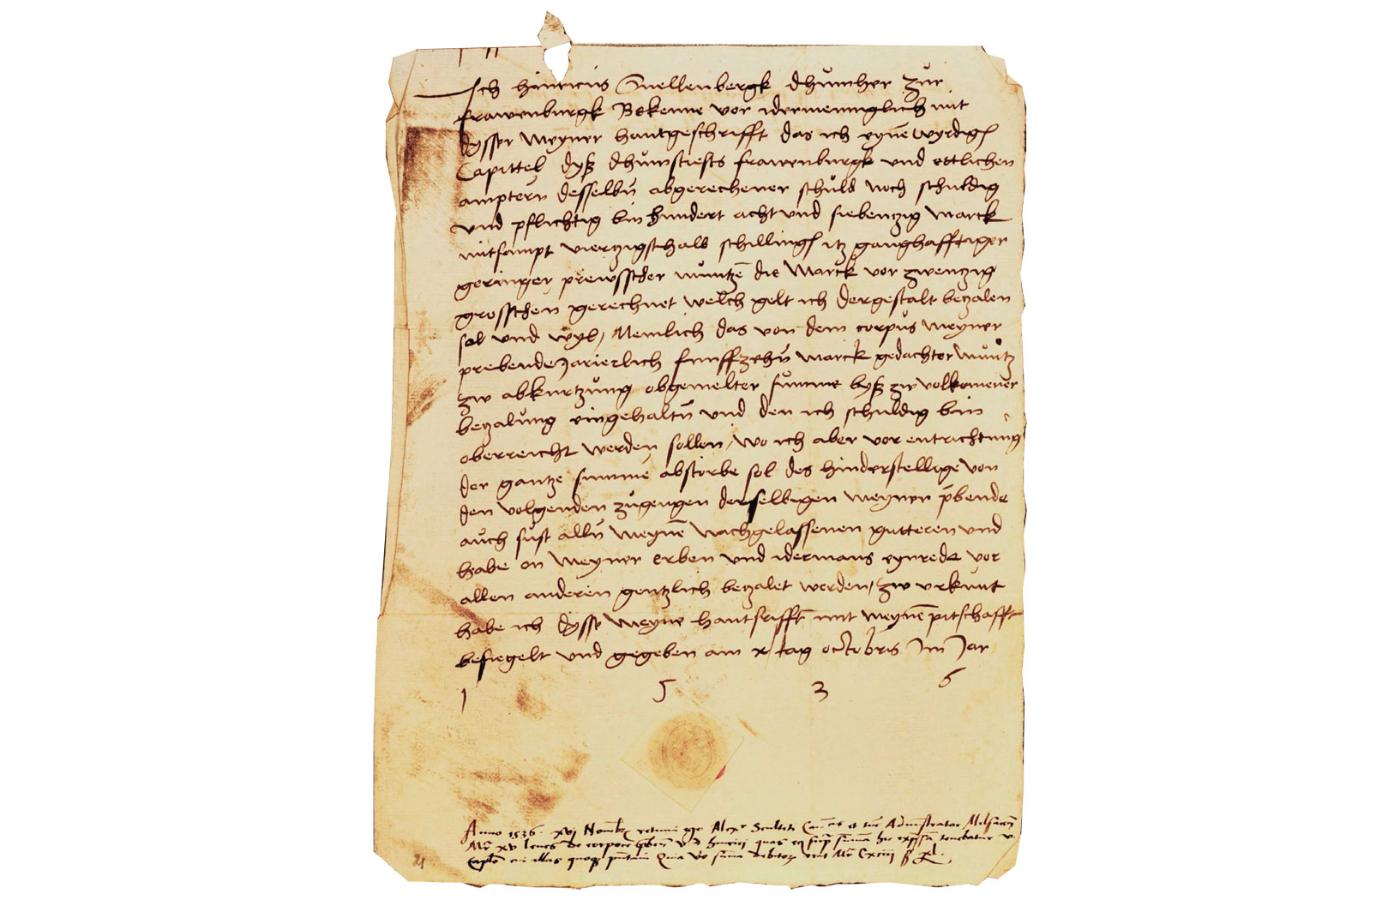 Ich hinricus Snellenbergk dhumher zur
frawenburgk Bekenne vor idermenniglich mit
dysser meyner hantgeschrifft das ich eyne wyrdig
Capittel dyß dhumstiefts frawenburgk und ettlichen
amptern desselbn abgerechener schuld noch schuldig
und pflichtig bin hundert acht und siebenzig marck
mitsampt vierzigsthalb schilling itz ganghafftiger
geringer prewsscher muntze die Marck vor zwenzig
grosschen gerechnet welch gelt ich dergestalt bezalen
sol und wyl, Nemlich das von dem corpus meyner
prebende Jarierlich funffzehn marck gedachter muntz
zw abkurtzung obgemelter summe byß zw volkomener
bezalung eingehaltn und den ich schuldig bin
oberreicht werden sollen, wo ich aber vor entrichtung
der gantze summe abstorbe sol des hinderstellige von
den volgenden zugengen derselbigen meyner pbende
auch sust alln meyne nachgelassenen gutteren und
habe on meyner erben und idermans eynrede vor
allen anderen gentzlich bezalet werden, zw urkunt
habe ich dysse meyne hantsrifft mit meyne pitschafft
besiegelt und gegeben am x tag octobris Im Jar
1 5 3 6
Anno 1536. xvj Nouemb retinui ego Alexr Sculteti Can et tuc Administrator
Mr xv leues de corpore pben d hinrici quas summa hic tenebatur
illas Quia summa debitor
21